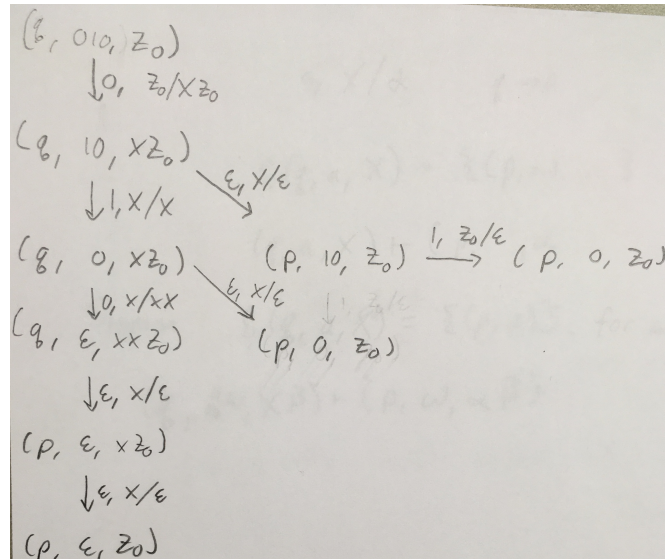 (q, 010, Z₀)
↓0, Z₀/XZ₀
(q, 10, XZ₀)
ε, X/ε
↓1, X/X
(q, 0, XZ₀)
(P, 10, Z₀) 1, Z₀/ε → (P, 0, Z₀)
ε, X/ε
↓0, X/XX
(q, ε, XXZ₀)
(P, 0, Z₀)
↓ε, X/ε
(P, ε, XZ₀)
↓ε, X/ε
(P, ε, Z₀)